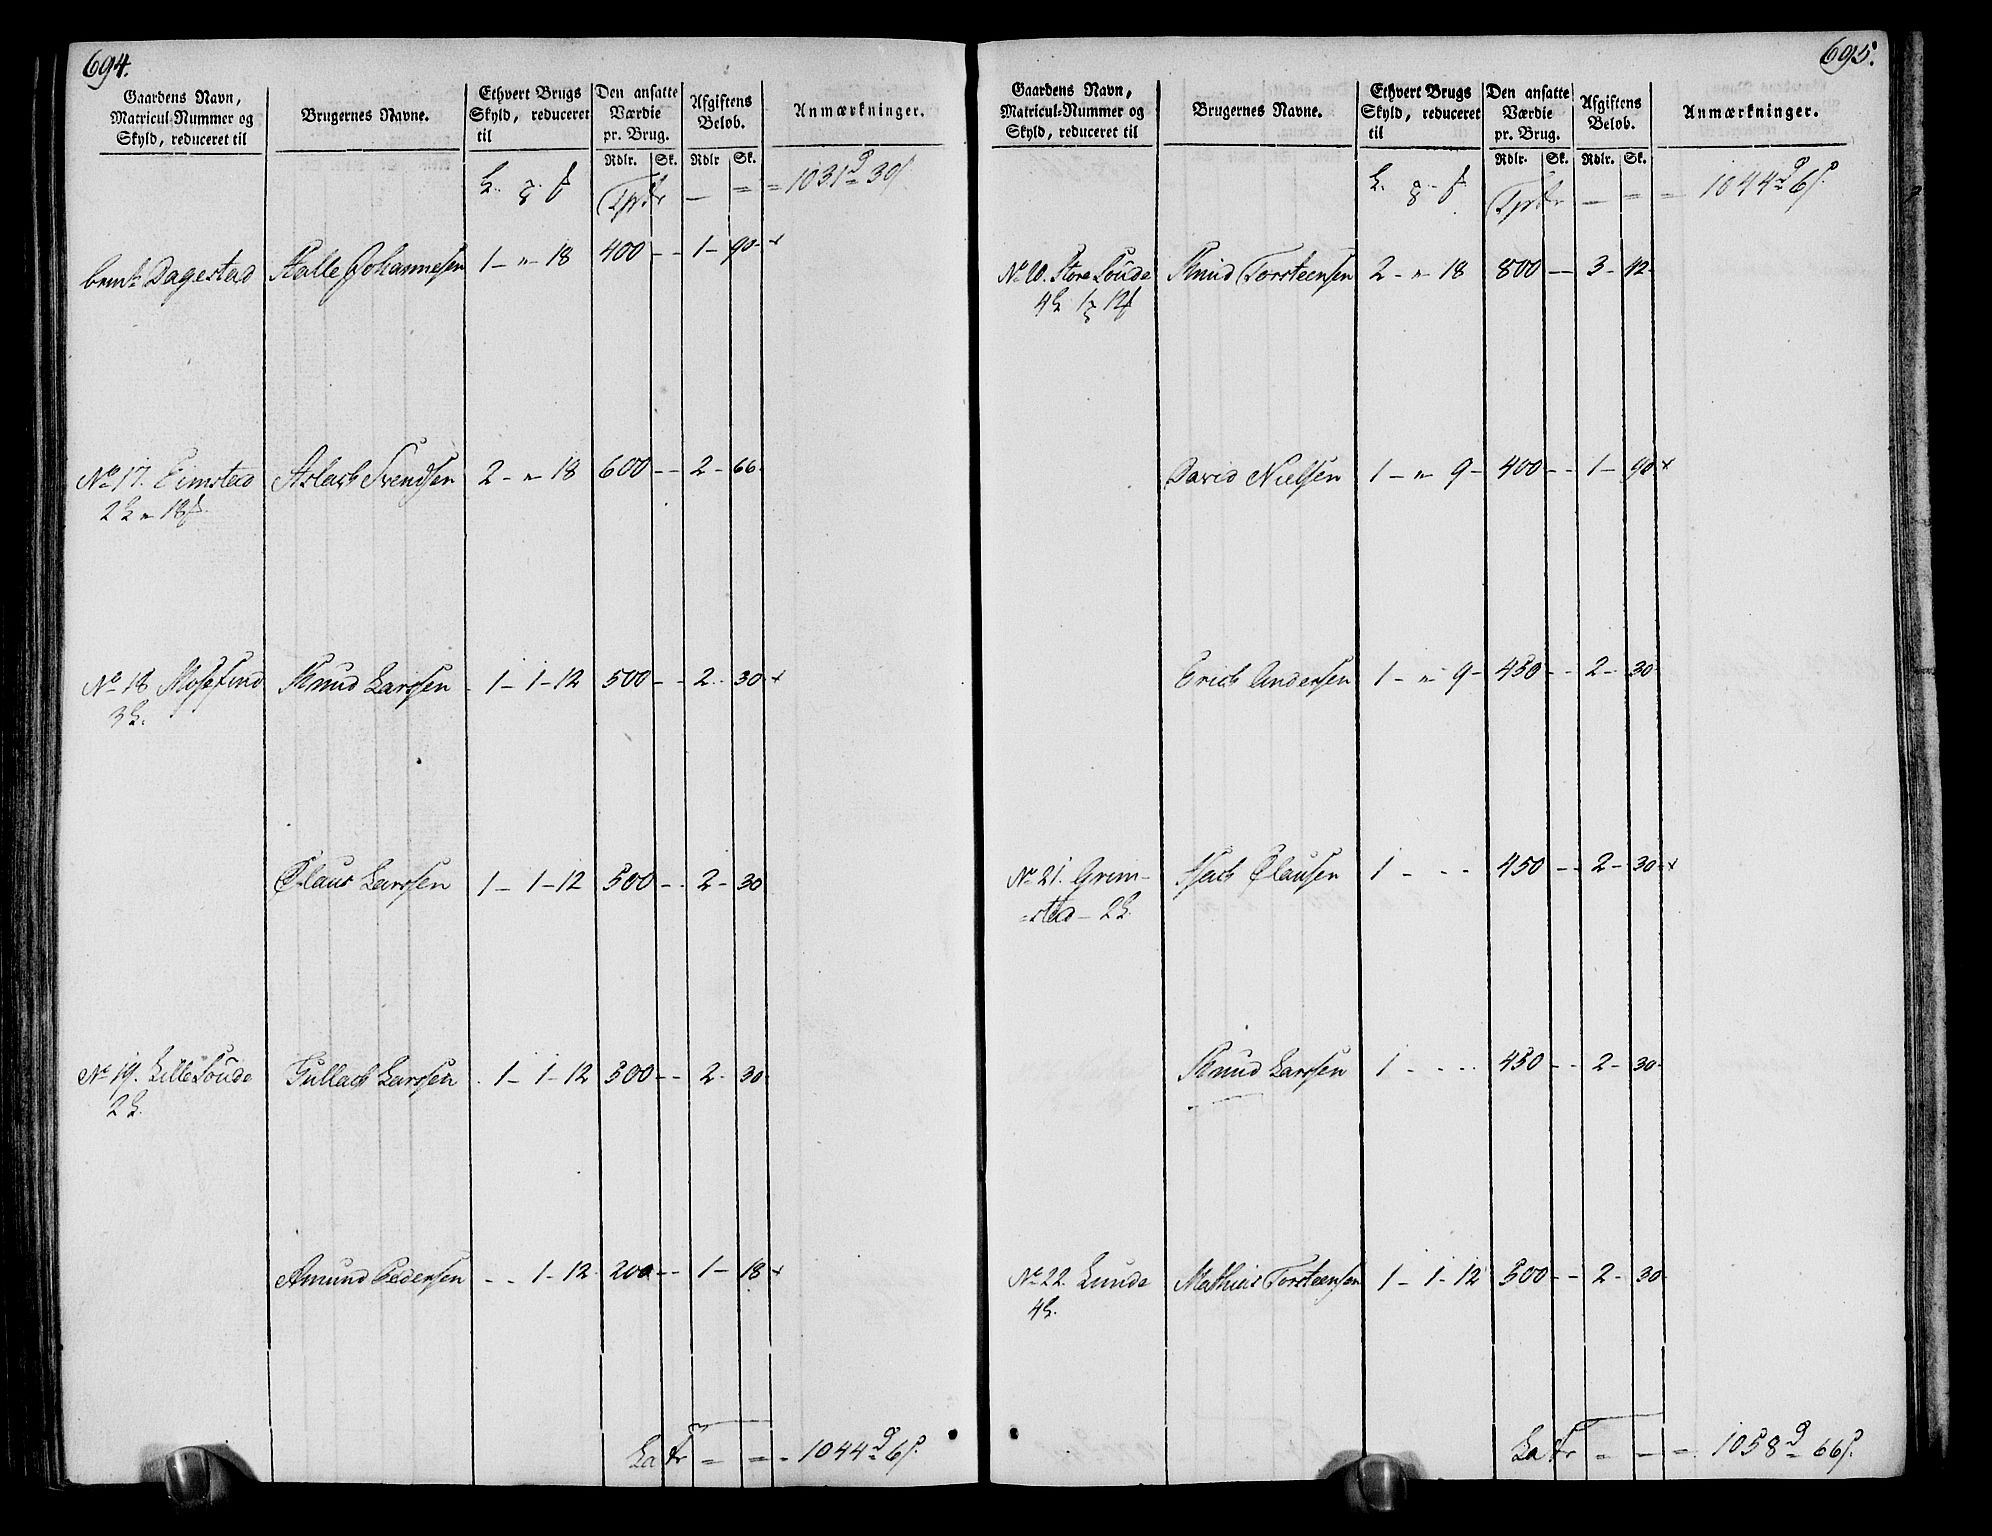 694.
Gaardens Navn, Matricul-Nummer og Skyld, reduceret til | Brugernes Navne. | Ethvert Brugs Skyld, reduceret til | Den ansatte Værdie pr. Brug. | Afgiftens Beløb. | Anmærkninger.
Rdlr. Sk. | Rdlr Sk.
Tpt Fr — = = 1031 30
bemt Dagestad | Halle Johannesen | 1 — „ — 18 | 400 — — | 1 — 90 x
No 17. Eimstad | Aslach Svendsen | 2 — „ — 18 | 600 — — | 2 — 66
2 „ 18
No 18 Mosefind | Knud Larssen | 1 — 1 — 12 | 500 — — | 2 — 30 x
3
Claus Larssen | 1 — 1 — 12 | 500 — — | 2 — 30
No 19. Lille Soude | Gullach Larssen | 1 — 1 — 12 | 500 — — | 2 — 30
2
Amund Pedersen | - - 1 — 12 | 200 — — | 1 — 18 x
La Fr = = = 1044 6
695.
Gaardens Navn, Matricul-Nummer og Skyld, reduceret til | Brugernes Navne. | Ethvert Brugs Skyld, reduceret til | Den ansatte Værdie pr. Brug. | Afgiftens Beløb. | Anmærkninger.
Rdlr. Sk. | Rdlr. Sk.
Tpt Fr — = = 1044 6
No 20. Store Soude | Knud Torsteensen | 2 — „ — 18 | 800 — — | 3 — 42
4 1 12
David Nielsen | 1 — „ — 9 | 400 — — | 1 — 90 x
Erich Andersen | 1 — „ — 9 | 450 — — | 2 — 30
No 21. Grim- | Clausen | 1 - - - | 450 — — | 2 — 30 x
=stad — 2
Knud Larssen | 1 - - - | 450 — — | 2 — 30
No 22. Lunde | Mathias Torsteensen | 1 — 1 — 12 | 500 — — | 2 — 30
4
La Fr = — = 1058 66